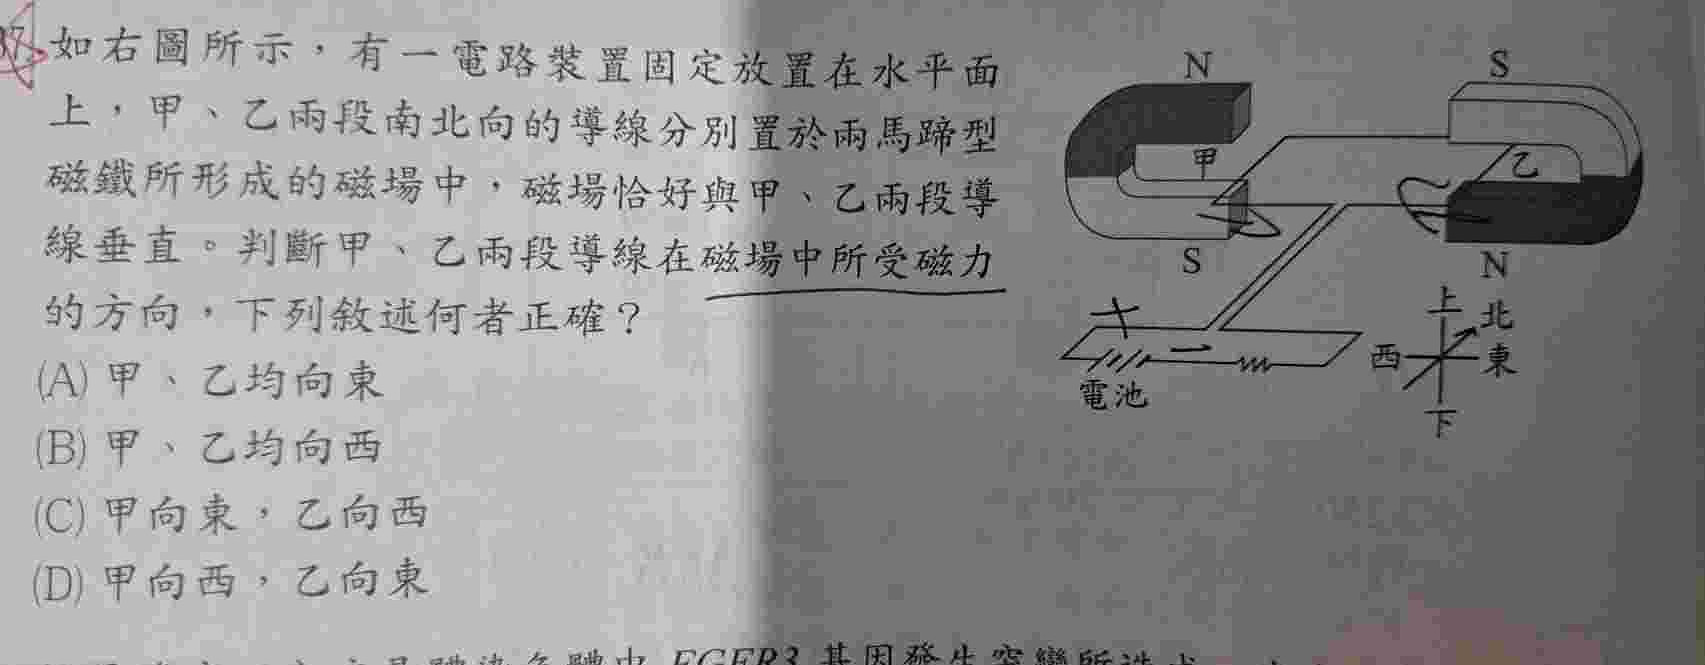 37.如右圖所示，有一電路裝置固定放置在水平面
上，甲、乙兩段南北向的導線分別置於兩馬蹄型
磁鐵所形成的磁場中，磁場恰好與甲、乙兩段導
線垂直。判斷甲、乙兩段導線在磁場中所受磁力
的方向，下列敘述何者正確？
(A) 甲、乙均向東
(B) 甲、乙均向西
(C) 甲向東，乙向西
(D) 甲向西，乙向東
N
S
甲
乙
S
N
電池
上
北
西
東
下